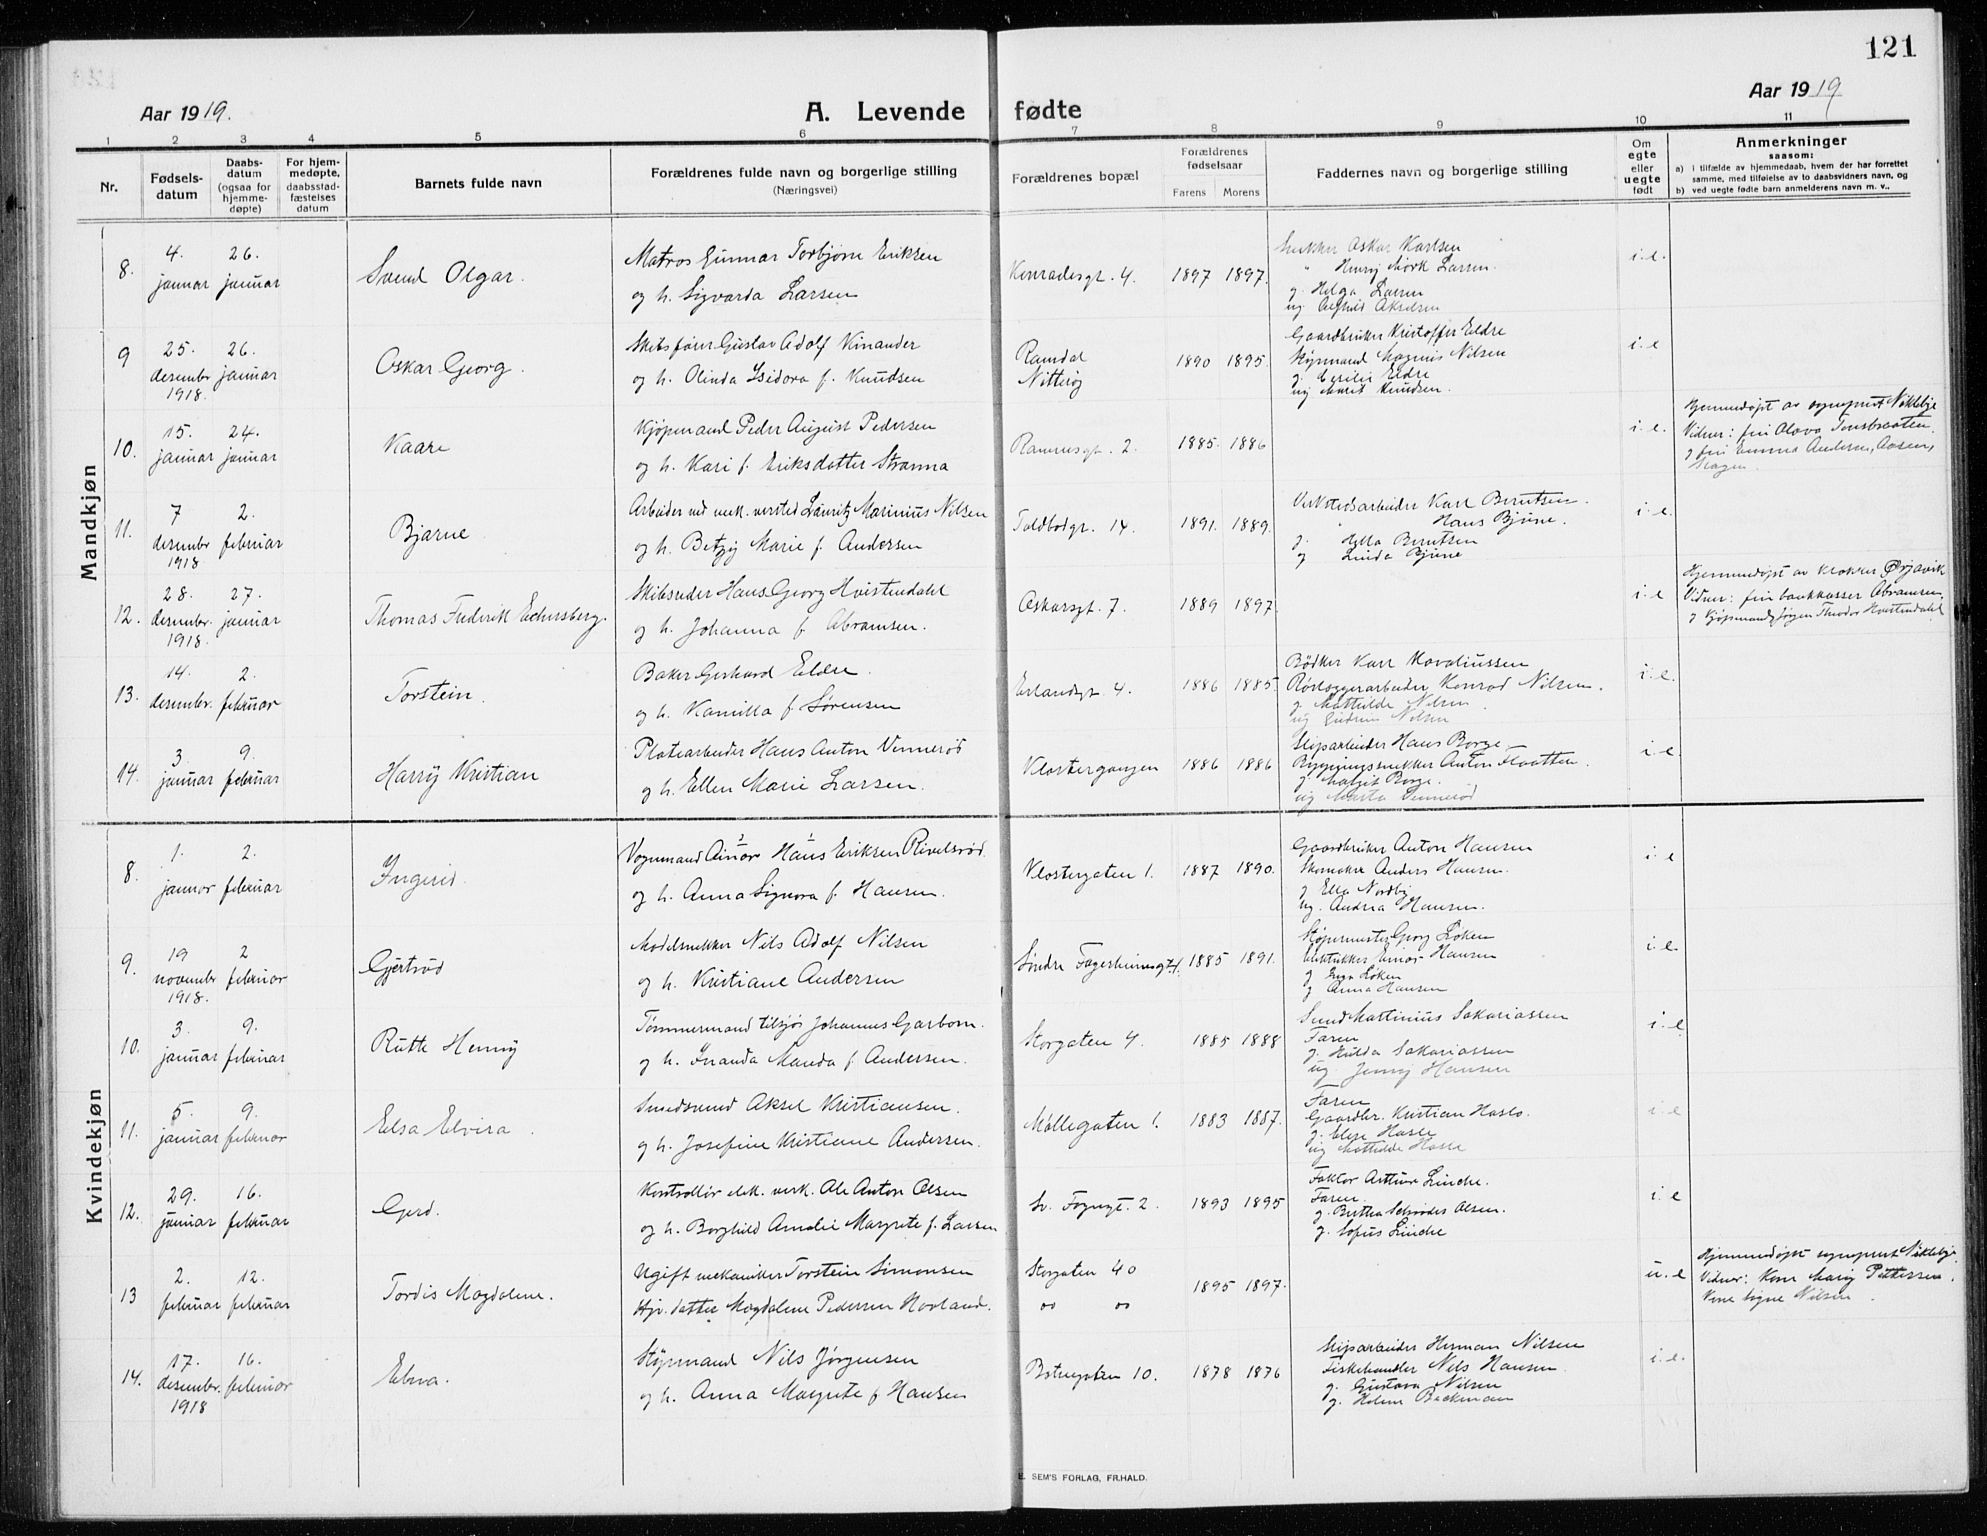 121
Aar 1919.
A. Levende fødte
Aar 1919
1 2 3 4 5 6 7 8 9 10 11
Nr.
Fødsels-
datum
Daabs-
datum
(ogsaa for
hjemme-
døpte)
For hjem-
medøpte,
daabsstad-
fæstelses
datum
Barnets fulde navn
Forældrenes fulde navn og borgerlige stilling
(Næringsvei)
Forældrenes bopæl
Forældrenes
fødselsaar
Farens Morens
Faddernes navn og borgerlige stilling
Om
egte
eller
uegte
født
Anmerkninger
saasom:
a) i tilfælde av hjemmedaab, hvem der har forrettet
samme, med tilføielse av to daabsvidners navn, og
b) ved uegte fødte barn anmelderens navn m. v..
Mandkjøn
8. 4. januar 26. januar Svend Olgar.
Matros Gunnar Torbjørn Eriksen
og h. Sigvarda Larsen
Konradesgt. 4. 1897 1897.
Snekker Oskar Karlsen
" Henry Mørk Larsen.
g. Helga Larsen
ug Akselsen
i. e.
9 25. desember 1918. 26. januar Oskar Georg.
Skibsfører Gustav Adolf Kinander
og h. Olinda Isidora f. Knudsen
Ramdal
Nøtterøy
1890 1895.
Gaardbruker Kristoffer Eldre
Styrmand Magnus Nilsen
g. Cecilie Eldre
ug Marit Knudsen.
i. e
10. 15. januar 24. januar Kaare
Kjøpmand Peder August Pedersen
og h. Kari f. Eriksdatter Stranna
2. 1885. 1886
i. e.
Hjemmedøpt av sogneprest
Vidner: frk Olava
g frk Emma Andersen, Aasen,
11. 7 desember 1918 2. februar Bjarne
Arbeider ved mek. versted Lauritz Marinius Nilsen
og h. Betzy Marie f. Andersen
Toldbodgt. 14. 1891. 1889.
Verkstedsarbeider Karl Berntsen.
" Hans Bjune.
g. Berntsen
g Linda Bjune
i. e.
12. 28. desember 1918. 27. januar Thomas Frederik Eckersberg.
Skibsreder Hans Georg Hvistendahl
og h. Johanna f Abramsen.
Oskarsgt. 7. 1889 1897.
i. e
Hjemmedøpt av klokker Ørjavik
Vidner: frk bankkasser Abramsen,
g Kjøpmand Jørgen Theodor Hvistendahl
13. 14. desember. 2. februar Torstein.
Baker Gerhard Eldre.
og h. Kamilla f Sørensen
Erlandsgt 4. 1886 1885.
Bødker Karl Movaliussen
Rørleggerarbeider Konrad Nilsen.
g. Mathilde Nilsen
ug Gudrun Nilsen
i. e.
14. 3. januar 9. februar Harry Kristian
Platearbeider Hans Anton Vennerød
og h. Ellen Marie Larsen.
Klostergangen 1886 1886
Sliparbeider Hans Borge
Bygningssnekker Anton Flaatten.
g. Borge.
ug Marta Vennerød
i. e.
Kvindekjøn
8. 1. januar 2. februar Ingerid.
Vognmand Ainar Hans Eriksen Rivelsrød.
og h. Anna Signora f. Hansen.
Klostergaten 1. 1887 1890.
Gaardbruker Anton Hansen
Skomaker Anders Hansen.
g Ella Nordby
ug. Andrea Hansen.
i. e
9. 19 november 1918. 2 februar Gjertrød
Modelsnekker Nils Adolf Nilsen
og h. Kristiane Andersen
Søndre Fagerheimsgt. 1. 1885 1891.
Støpermester Georg Løken
Einar Hansen
g Løken
g Anna Hansen
i. e.
10. 3. januar 9. februar Ruth Henny
Tømmermand tilsjøs Johannes Garbom.
og h. Inanda Manda f. Andersen.
Storgaten 4. 1885 1888
Smed Martinius Sakariassen
Faren
g. Hulda Sakariassen
ug. Jenny Hansen
i. e
11. 5. januar 9. februar Elsa Elvira.
Smedsvend Aksel Kristiansen.
og h. Josefine Kristiane Andersen.
Møllegaten 1. 1883 1887.
Faren
Gaardbr. Kristian Hasle.
g. Hasle
ug Mathilde Hasle
i. e
12. 29. januar 16. februar Gerd.
Kontrollør elek. verk. Ole Anton Olsen
og h. Borghild Amalie Margrete f. Larsen
2. 1893 1895
Faktor Arthur Linche.
Faren.
g. Bertha Schrøder Olsen.
g. Sofus Linche
i. e
13 2. februar 12. februar Tordis Magdalene.
Ugift mekaniker Torstein Simonsen
Hjv. datter Magdalene Pedersen Hovland.
Storgaten 40
" "
1895 1897.
u. e
Hjemmedøpt sogneprest
Vidner: Kone Mary Pettersen.
Kone Signe Nilsen
14. 17. desember. 1918 16. februar Elna.
Styrmand Nils Jørgensen
og h. Anna Margrete f Hansen
10. 1878 1876
Sliparbeider Herman Nilsen
Fiskehandler Nils Hansen.
g. Gustava Nilsen
g. Helene Beckman
i. e.
E. SEM'S FORLAG, FR.HALD.